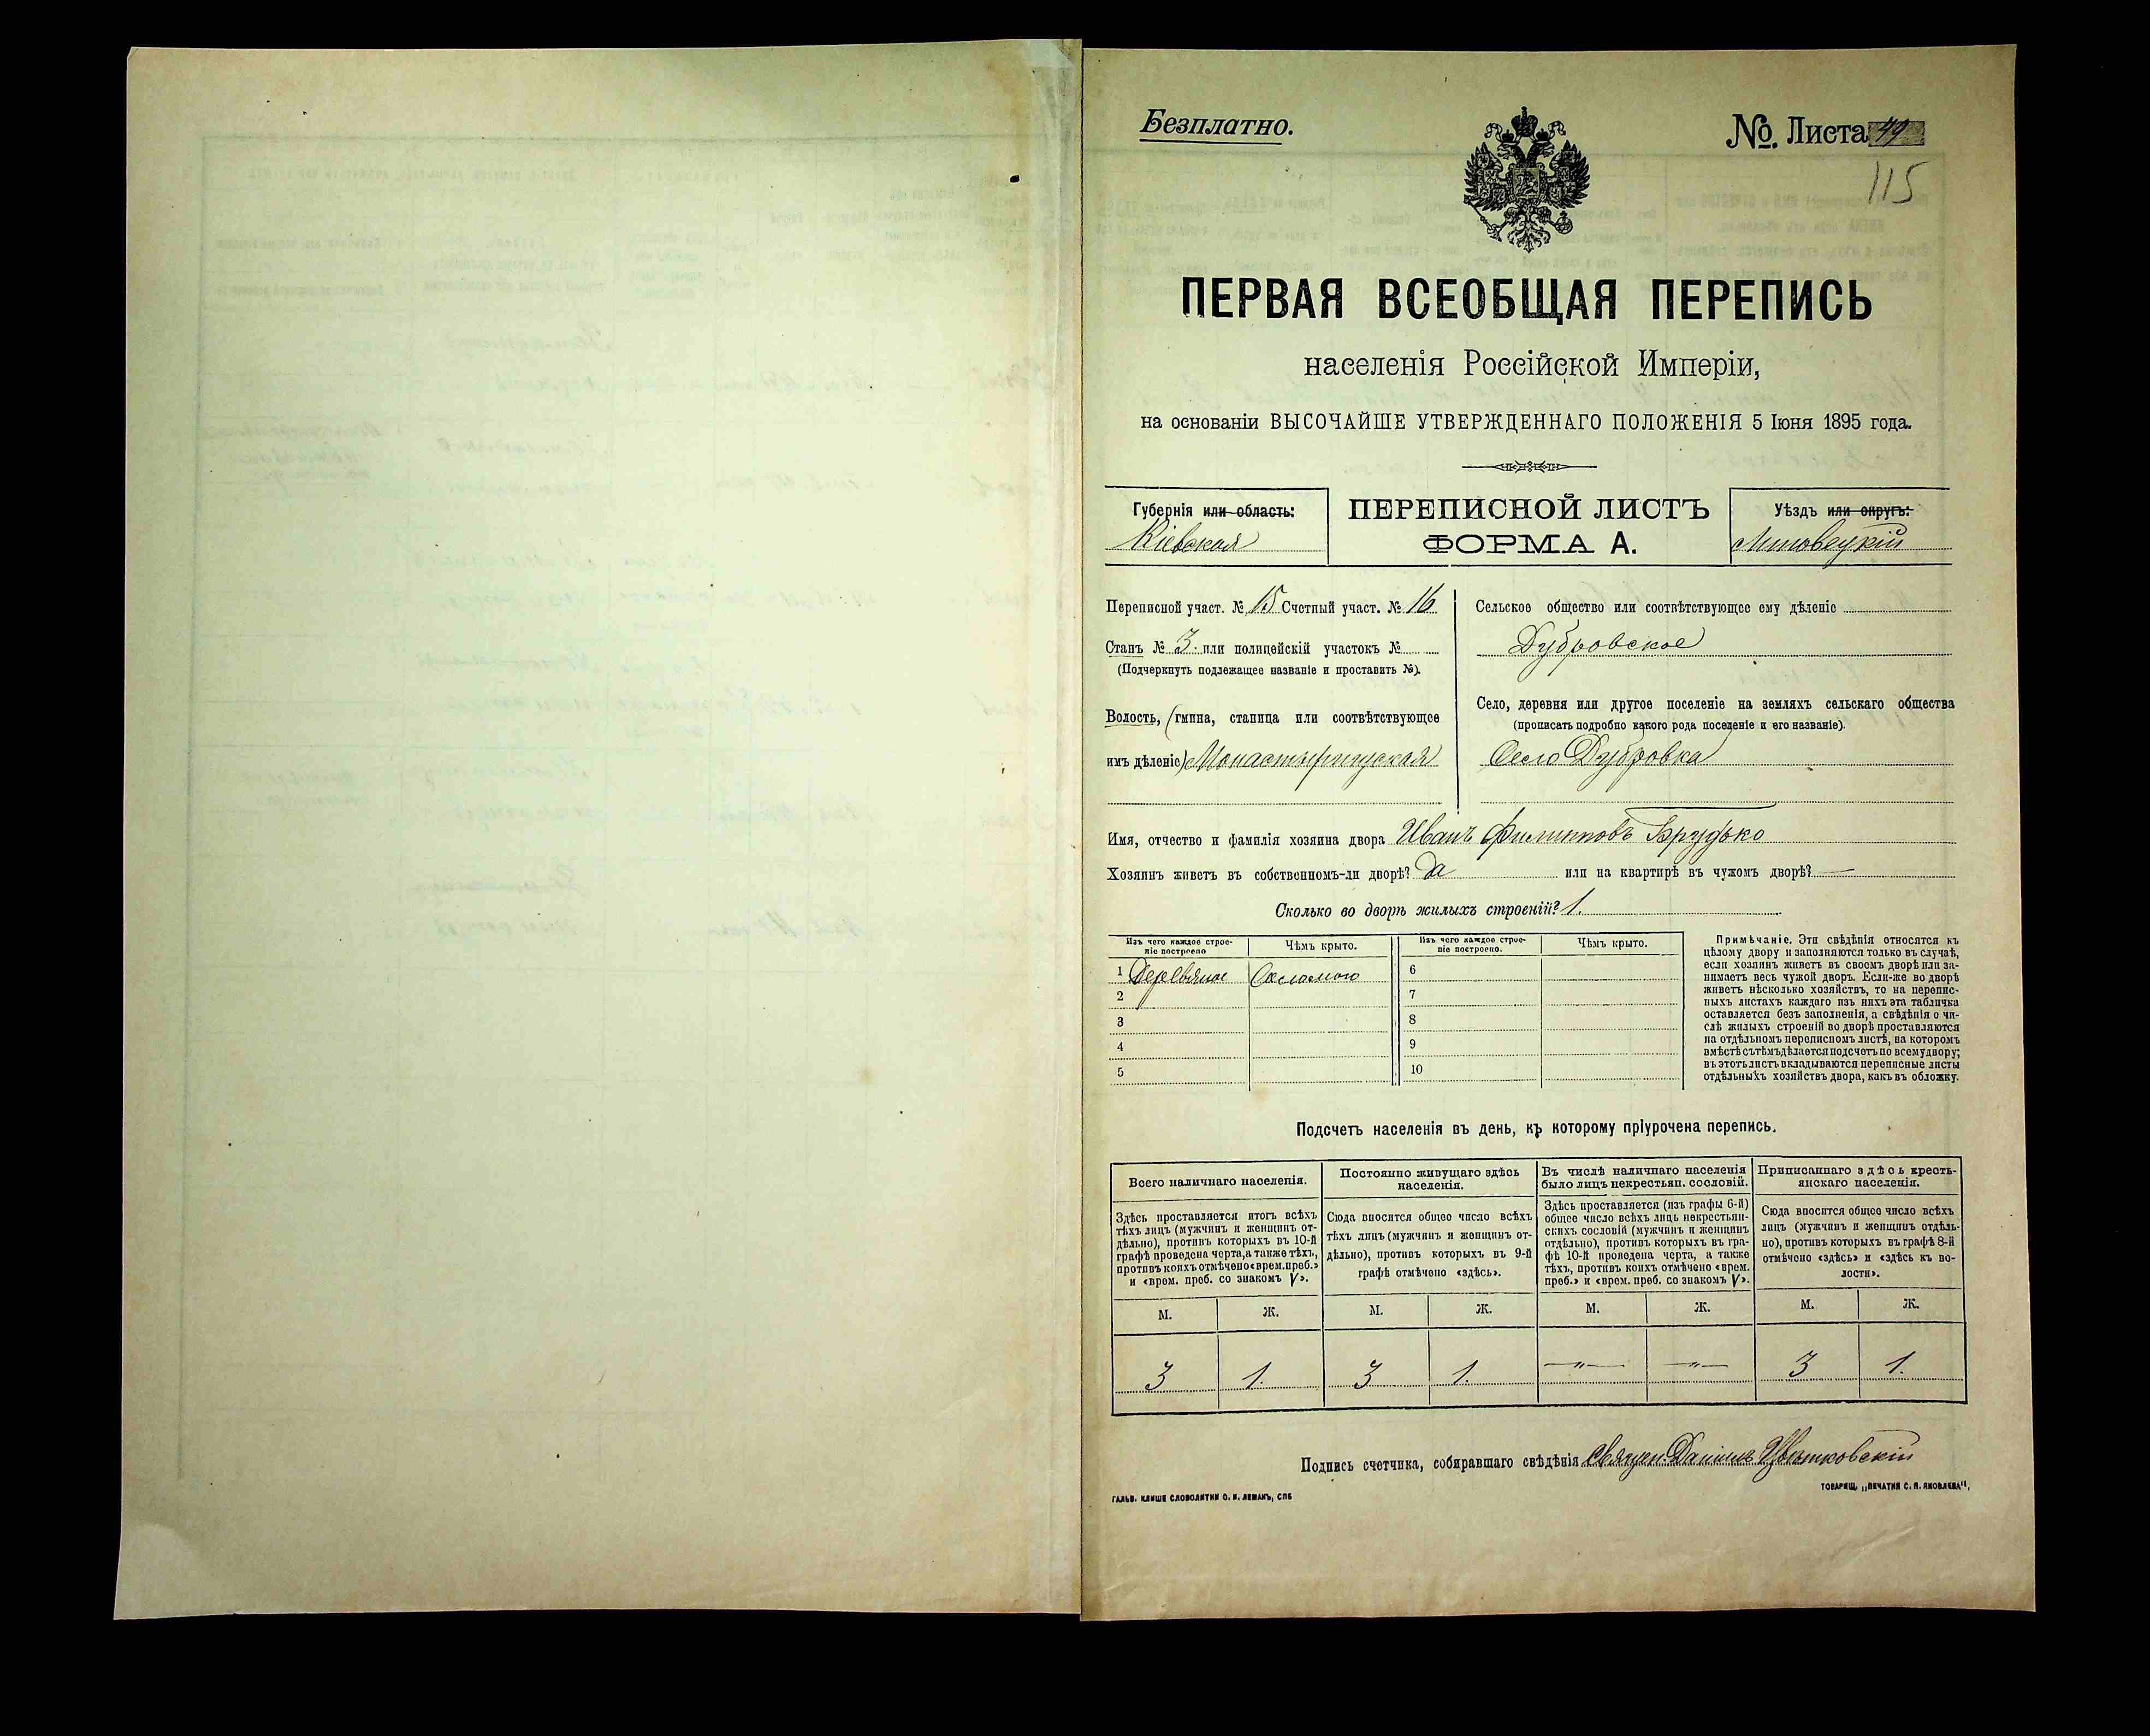 Безплатно.
№. Листа 49
115
ПЕРВАЯ ВСЕОБЩАЯ ПЕРЕПИСЬ
населенія Россійской Имперіи,
на основаніи ВЫСОЧАЙШЕ УТВЕРЖДЕННАГО ПОЛОЖЕНІЯ 5 Іюня 1895 года.
Губернія или область:
Кіевская
ПЕРЕПИСНОЙ ЛИСТЪ
ФОРМА А.
Уѣздъ или округъ:
Липовецкій
Переписной участ. № 15 Счетный участ. № 16
Станъ № 3. или полицейскій участокъ №
(Подчеркнуть подлежащее названіе и проставить №).
Волость, (гмина, станица или соотвѣтствующее
имъ дѣленіе) Монастырищская
Сельское общество или соотвѣтствующее ему дѣленіе
Дубровское
Село, деревня или другое поселеніе на земляхъ сельскаго общества
(прописать подробно какого рода поселеніе и его названіе).
Село Дубровка
Имя, отчество и фамилія хозяина двора Иванъ Филиповъ Брудько
Хозяинъ живетъ въ собственномъ-ли дворѣ? Да или на квартирѣ въ чужомъ дворѣ? —
Сколько во дворѣ жилыхъ строеній? 1.
Изъ чего каждое строе-
ніе построено
Чѣмъ крыто.
Изъ чего каждое строе-
ніе построено.
Чѣмъ крыто.
1 Деревяное Соломою
2
3
4
5
6
7
8
9
10
Примѣчаніе. Эти свѣдѣнія относятся къ
цѣлому двору и заполняются только въ случаѣ,
если хозяинъ живетъ въ своемъ дворѣ или за-
нимаетъ весь чужой дворъ. Если-же во дворѣ
живетъ нѣсколько хозяйствъ, то на перепис-
ныхъ листахъ каждаго изъ нихъ эта табличка
оставляется безъ заполненія, а свѣдѣнія о чи-
слѣ жилыхъ строеній во дворѣ проставляются
на отдѣльномъ переписномъ листѣ, на которомъ
вмѣстѣ съ тѣмъ дѣлается подсчетъ по всему двору;
въ этотъ листъ вкладываются переписные листы
отдѣльныхъ хозяйствъ двора, какъ въ обложку.
Подсчетъ населенія въ день, къ которому пріурочена перепись.
Всего наличнаго населенія.
Здѣсь проставляется итогъ всѣхъ
тѣхъ лицъ (мужчинъ и женщинъ от-
дѣльно), противъ которыхъ въ 10-й
графѣ проведена черта, а также тѣхъ,
противъ коихъ отмѣчено «врем. преб.»
и «врем. преб. со знакомъ V».
Постоянно живущаго здѣсь
населенія.
Сюда вносится общее число всѣхъ
тѣхъ лицъ (мужчинъ и женщинъ от-
дѣльно), противъ которыхъ въ 9-й
графѣ отмѣчено «здѣсь».
Въ числѣ наличнаго населенія
было лицъ некрестьян. сословій.
Здѣсь проставляется (изъ графы 6-й)
общее число всѣхъ лицъ некрестьян-
скихъ сословій (мужчинъ и женщинъ
отдѣльно), противъ которыхъ въ гра-
фѣ 10-й проведена черта, а также
тѣхъ, противъ коихъ отмѣчено «врем.
преб.» и «врем. преб. со знакомъ V».
Приписаннаго здѣсь кресть-
янскаго населенія.
Сюда вносится общее число всѣхъ
лицъ (мужчинъ и женщинъ отдѣль-
но), противъ которыхъ въ графѣ 8-й
отмѣчено «здѣсь» и «здѣсь къ во-
лости».
М. Ж. М. Ж. М. Ж. М. Ж.
3 1. 3 1. —"— —"— 3 1.
Подпись счетчика, собиравшаго свѣдѣнія Священ. Даніилъ Цвѣтковскій
ГАЛЬВ. КЛИШЕ СЛОВОЛИТНИ О. И. ЛЕМАНЪ, СПБ
ТОВАРИЩ. „ПЕЧАТНЯ С. П. ЯКОВЛЕВА",